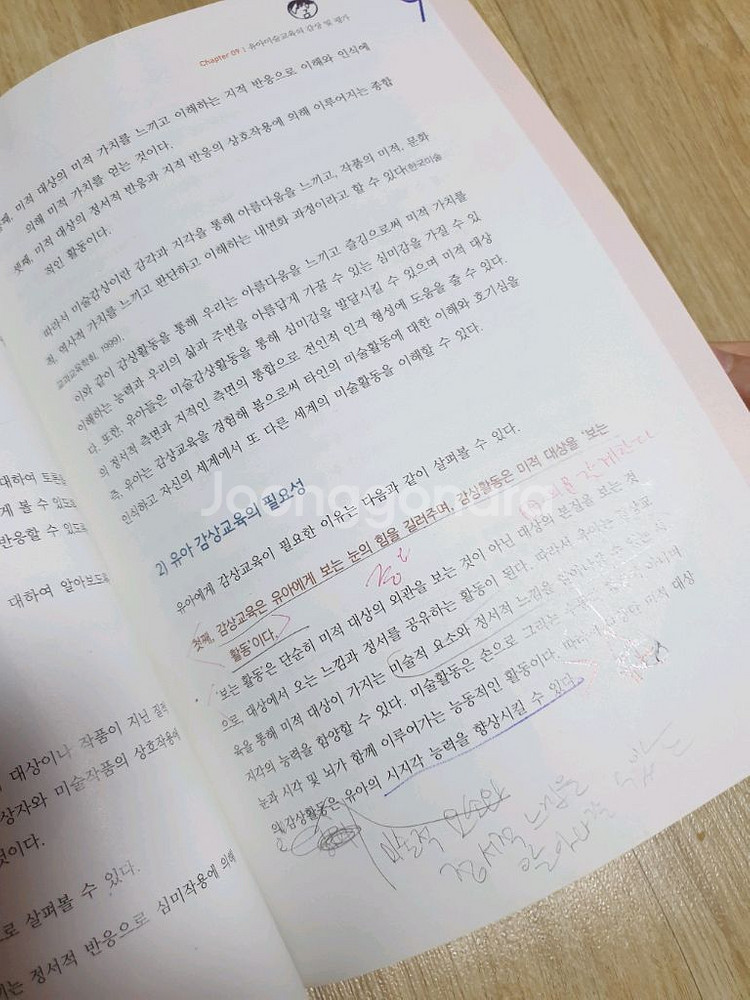 Chapter 09 | 유아미술교육의 감상 및 평가
미적 대상의 미적 가치를 느끼고 이해하는 지적 반응으로 이해와 인식에
의해 미적 가치를 얻는 것이다.
셋째, 미적 대상의 정서적 반응과 지적 반응의 상호작용에 의해 이루어지는 종합
적인 활동이다.
따라서 미술감상이란 감각과 지각을 통해 아름다움을 느끼고, 작품의 미적, 문화
적, 역사적 가치를 느끼고 판단하고 이해하는 내면화 과정이라고 할 수 있다(한국미술
교과교육학회, 1999).
이와 같이 감상활동을 통해 우리는 아름다움을 느끼고 즐김으로써 미적 가치를
이해하는 능력과 우리의 삶과 주변을 아름답게 가꿀 수 있는 심미감을 가질 수 있
다. 또한, 유아들은 미술감상활동을 통해 심미감을 발달시킬 수 있으며 미적 대상
의 정서적 측면과 지적인 측면의 통합으로 전인적 인격 형성에 도움을 줄 수 있다.
즉, 유아는 감상교육을 경험해 봄으로써 타인의 미술활동에 대한 이해와 호기심을
인식하고 자신의 세계에서 또 다른 세계의 미술활동을 이해할 수 있다.
2) 유아 감상교육의 필요성
유아에게 감상교육이 필요한 이유는 다음과 같이 살펴볼 수 있다.
첫째, 감상교육은 유아에게 보는 눈의 힘을 길러주며, 감상활동은 미적 대상을 '보는
활동'이다.
'보는 활동'은 단순히 미적 대상의 외관을 보는 것이 아닌 대상의 본질을 보는 것
으로, 대상에서 오는 느낌과 정서를 공유하는 활동이 된다. 따라서 유아는 감상교
육을 통해 미적 대상이 가지는 미술적 요소와 정서적 느낌을 알아나갈 수 있는 시
지각의 능력을 함양할 수 있다. 미술활동은 손으로 그리는 수동적
눈과 시각 및 뇌가 함께 이루어가는 능동적인 활동이다. 따라서 미적 대상
의 감상활동은 유아의 시지각 능력을 향상시킬 수 있다.
정서적 느낌을
알아나갈 수 있는
대하여 토론
게 볼 수 있도록
반응할 수 있도록
대하여 알아보도록
대상이나 작품이 지닌 질적
상자와 미술작품의 상호작용에
것이다.
로 살펴볼 수 있다.
는 정서적 반응으로 심미작용에 의해
Joonggonara